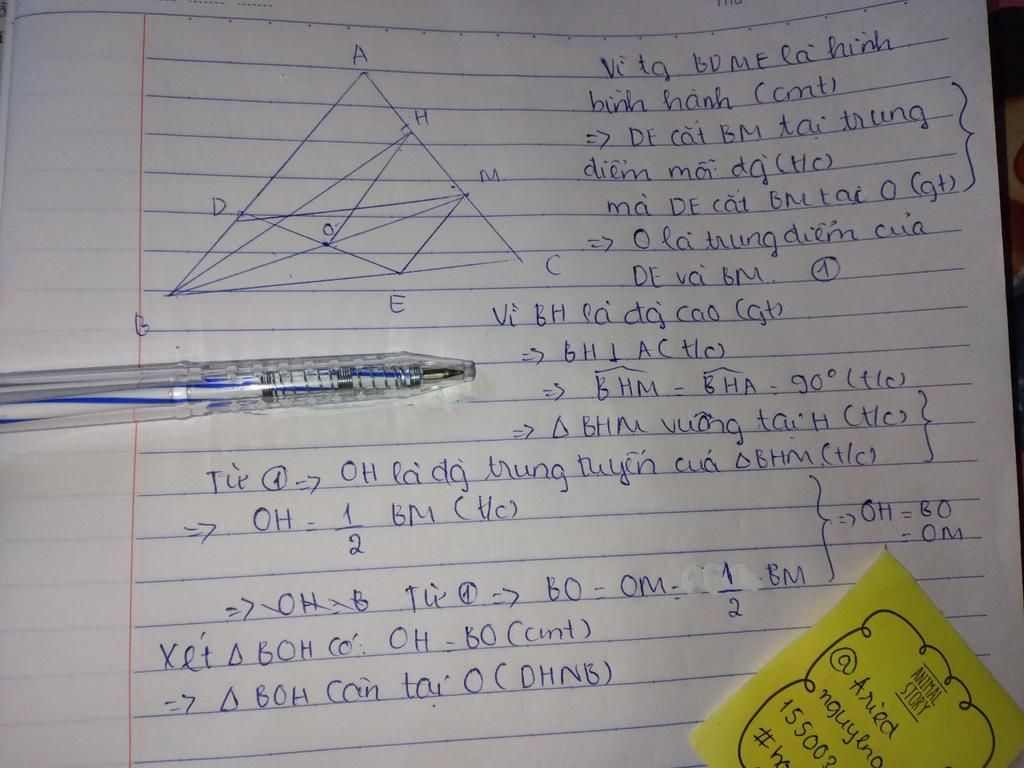 Thứ
A
H
M
D
O
C
E
B
Vì tg BDME là hình
bình hành (cmt)
=> DE cắt BM tại trung
điểm mỗi đg (t/c)
mà DE cắt BM tại O (gt)
=> O là trung điểm của
DE và BM. ①
Vì BH là đg cao (gt)
=> BH ⊥ AC (t/c)
=> BHM = BHA = 90° (t/c)
=> Δ BHM vuông tại H (t/c)
Từ ① => OH là đg trung tuyến cuả ΔBHM (t/c)
=> OH = 1/2 BM (t/c)
=> OH = BO
= OM
=> OH = B Từ ① => BO = OM = 1/2 BM
Xét Δ BOH có: OH = BO (cmt)
=> Δ BOH cân tại O (DHNB)
ANIMAL
STORY
@Aried
nguyeno
155003